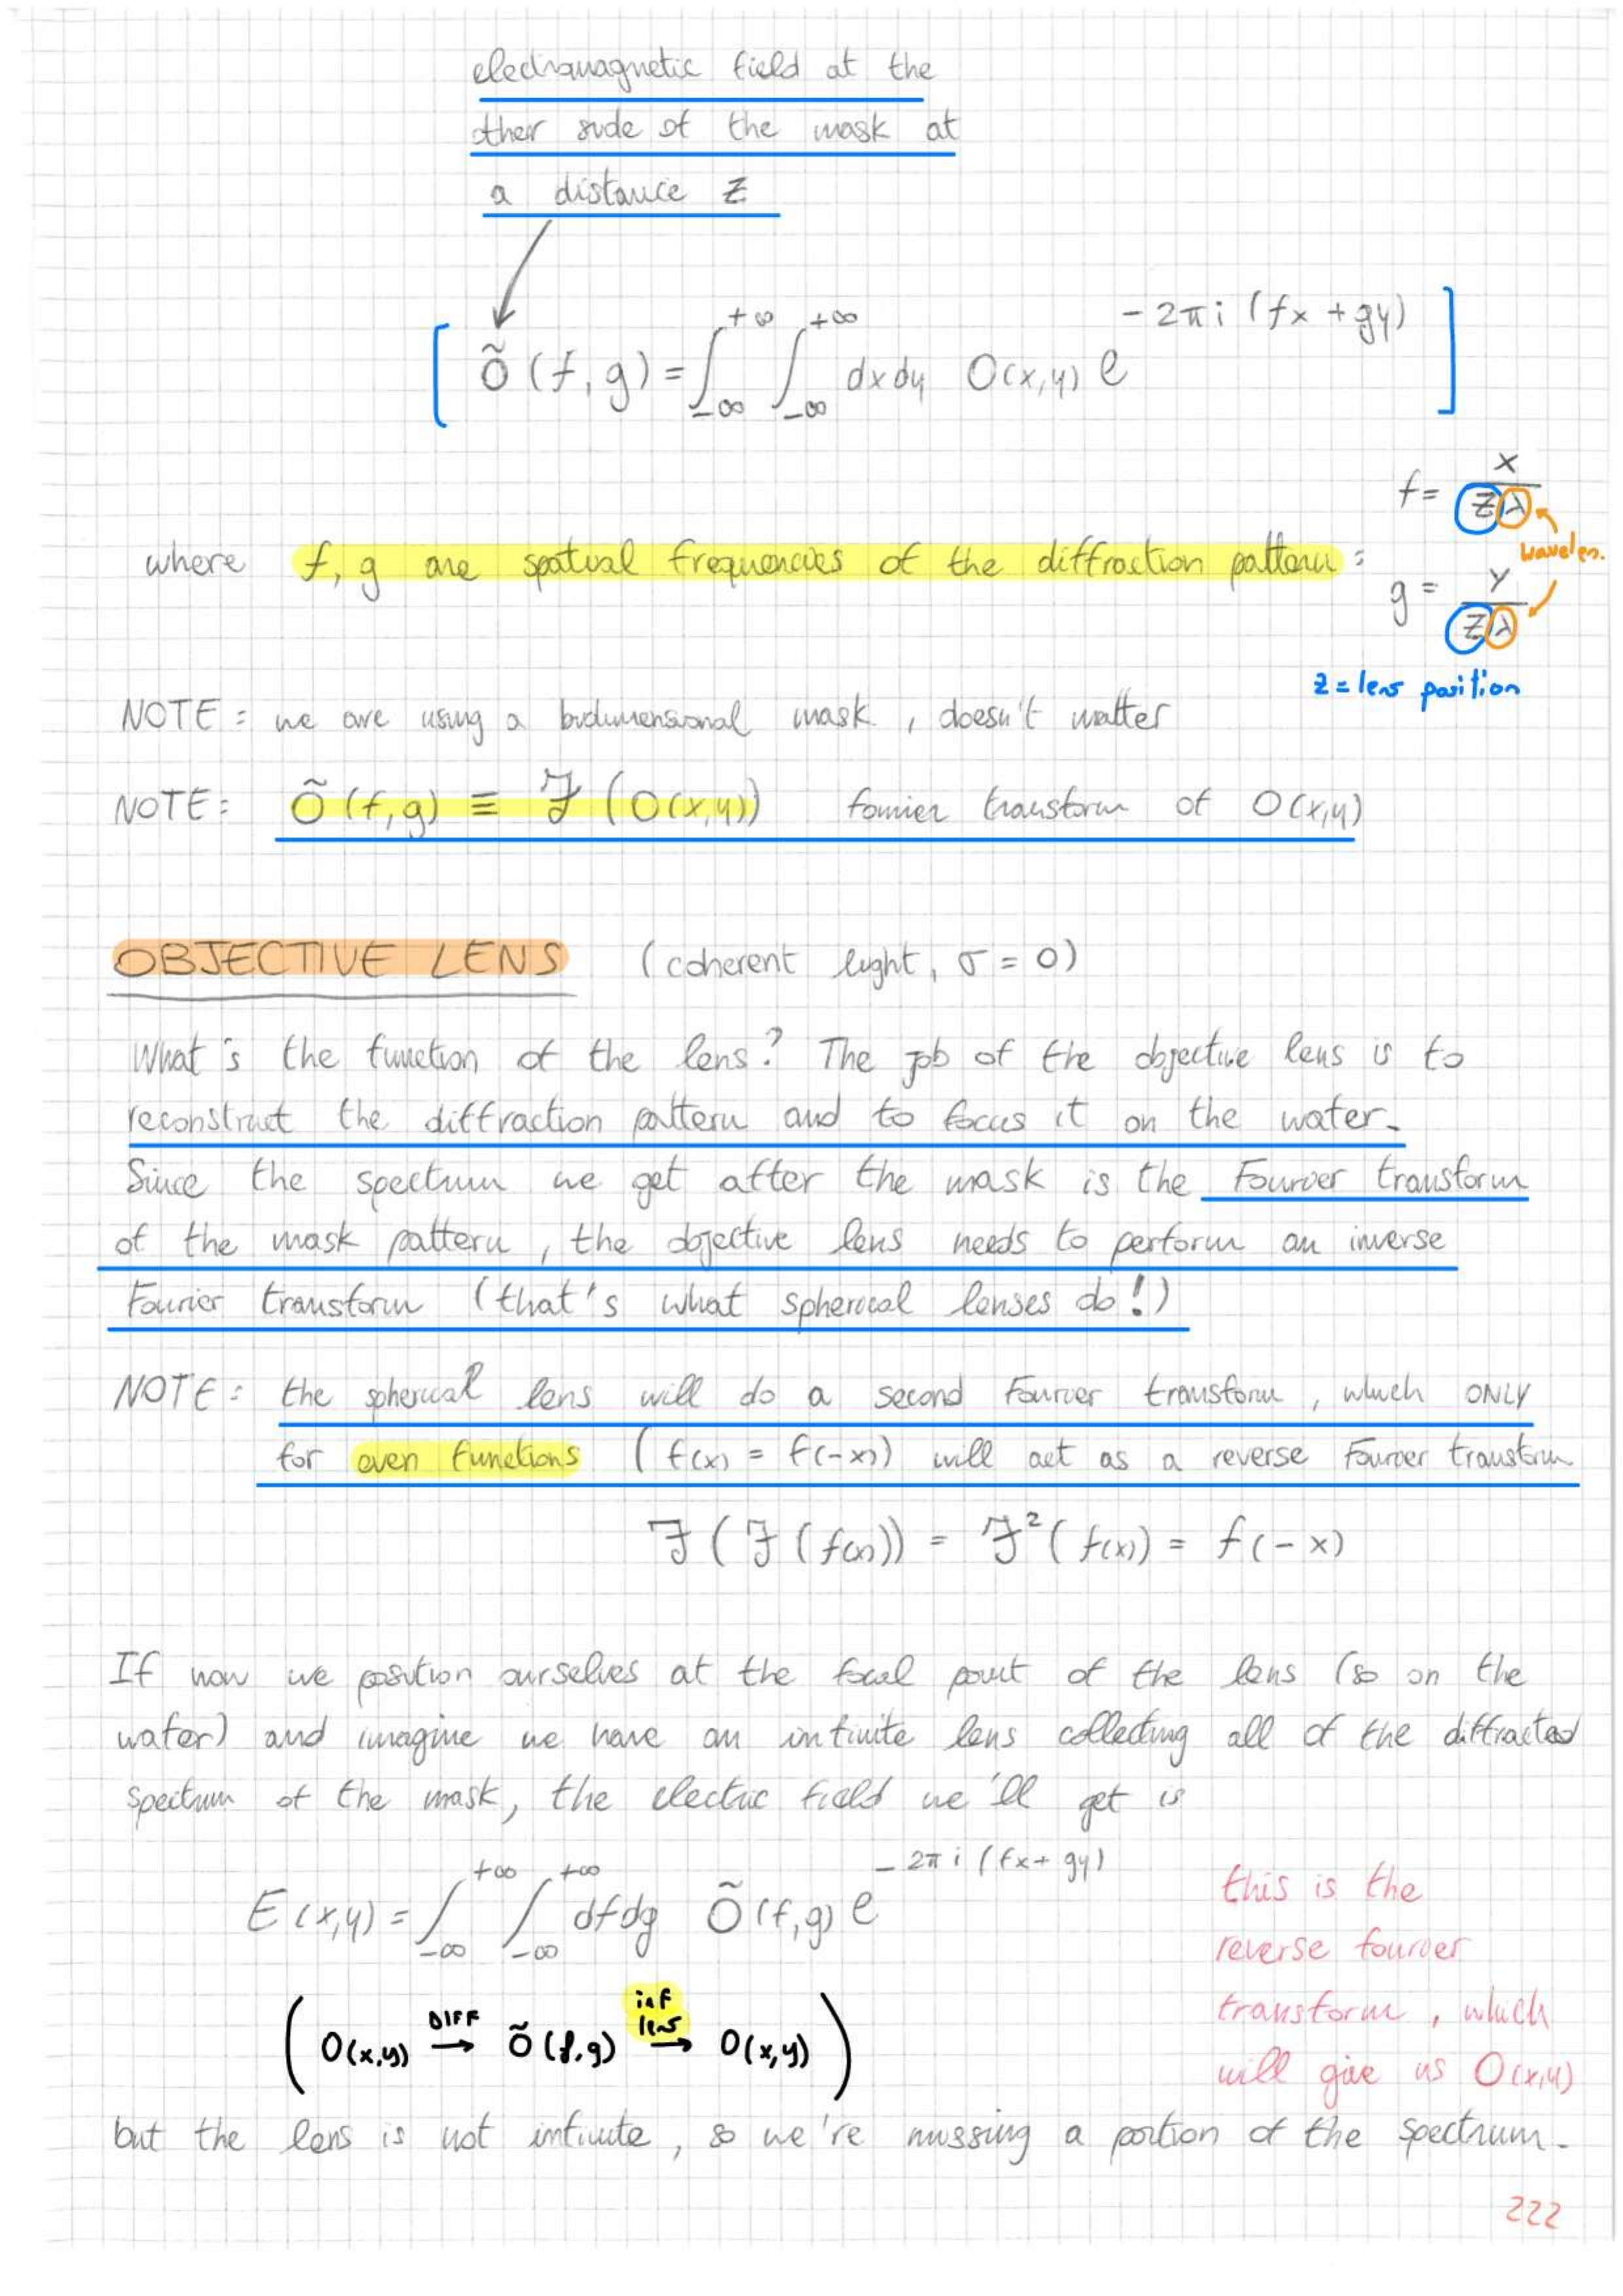 electromagnetic field at the
other side of the mask at
a distance z
Õ(f,g) = ∫_{-∞}^{+∞} ∫_{-∞}^{+∞} dxdy O(x,y) e^{-2πi(fx+gy)}
f = x / zλ
wavelen.
where f, g are spatial frequencies of the diffraction pattern :
g = y / zλ
z = lens position
NOTE : we are using a bidimensional mask, doesn't matter
NOTE : Õ(f,g) ≡ ℱ(O(x,y)) fourier transform of O(x,y)
OBJECTIVE LENS (coherent light, σ = 0)
What's the function of the lens? The job of the objective lens is to
reconstruct the diffraction pattern and to focus it on the wafer.
Since the spectrum we get after the mask is the Fourier transform
of the mask pattern, the objective lens needs to perform an inverse
Fourier transform (that's what spherical lenses do!)
NOTE : the spherical lens will do a second Fourier transform, which ONLY
for even functions (f(x) = f(-x)) will act as a reverse Fourier transform
ℱ(ℱ(f(x))) = ℱ²(f(x)) = f(-x)
If now we position ourselves at the focal point of the lens (so on the
wafer) and imagine we have an infinite lens collecting all of the diffracted
spectrum of the mask, the electric field we'll get is
E(x,y) = ∫_{-∞}^{+∞} ∫_{-∞}^{+∞} dfdg Õ(f,g) e^{-2πi(fx+gy)}
this is the
reverse fourier
transform, which
will give us O(x,y)
(O(x,y) DIFF→ Õ(f,g) inf lens→ O(x,y))
but the lens is not infinite, so we're missing a portion of the spectrum.
222